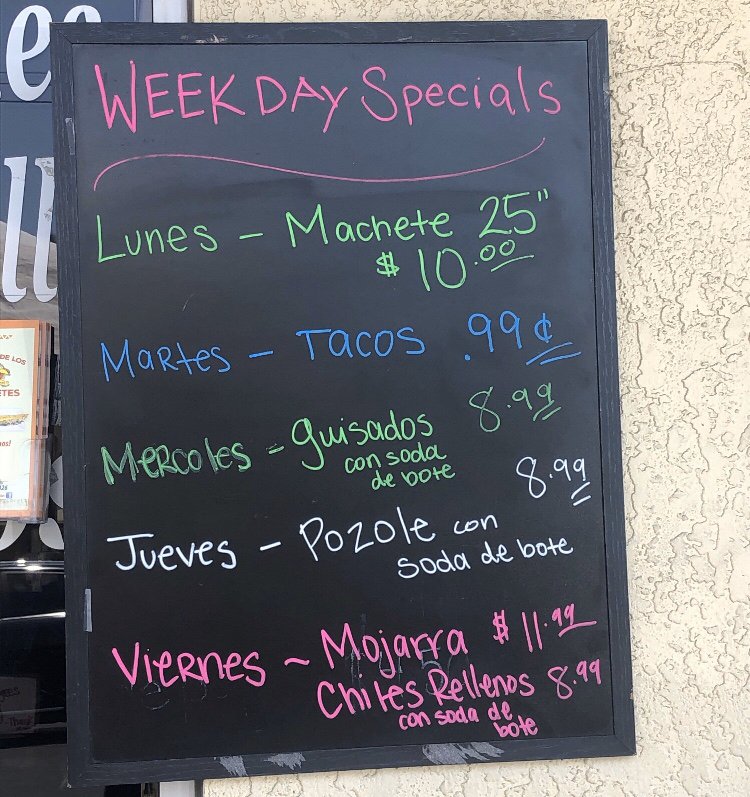 WEEKDAY Specials
Lunes - Machete 25"
$10.00
Martes - Tacos .99¢
Mercoles - guisados 8.99
con soda
de bote
Jueves - Pozole con 8.99
soda de bote
Viernes ~ Mojarra $11.99
Chiles Rellenos 8.99
con soda de
bote
DE LOS
ETES